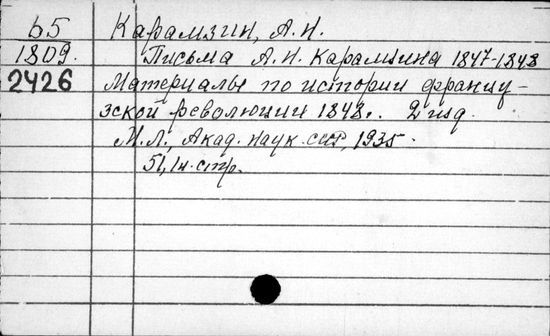 65
Карамзин, А. Н.
1809.
Письма А. Н. Карамзина 1847-1848
2426
Материалы по истории француз-
зской революции 1848.. 2 изд.
М. Л., Акад. наук СССР, 1935.
51, 1 н. стр.